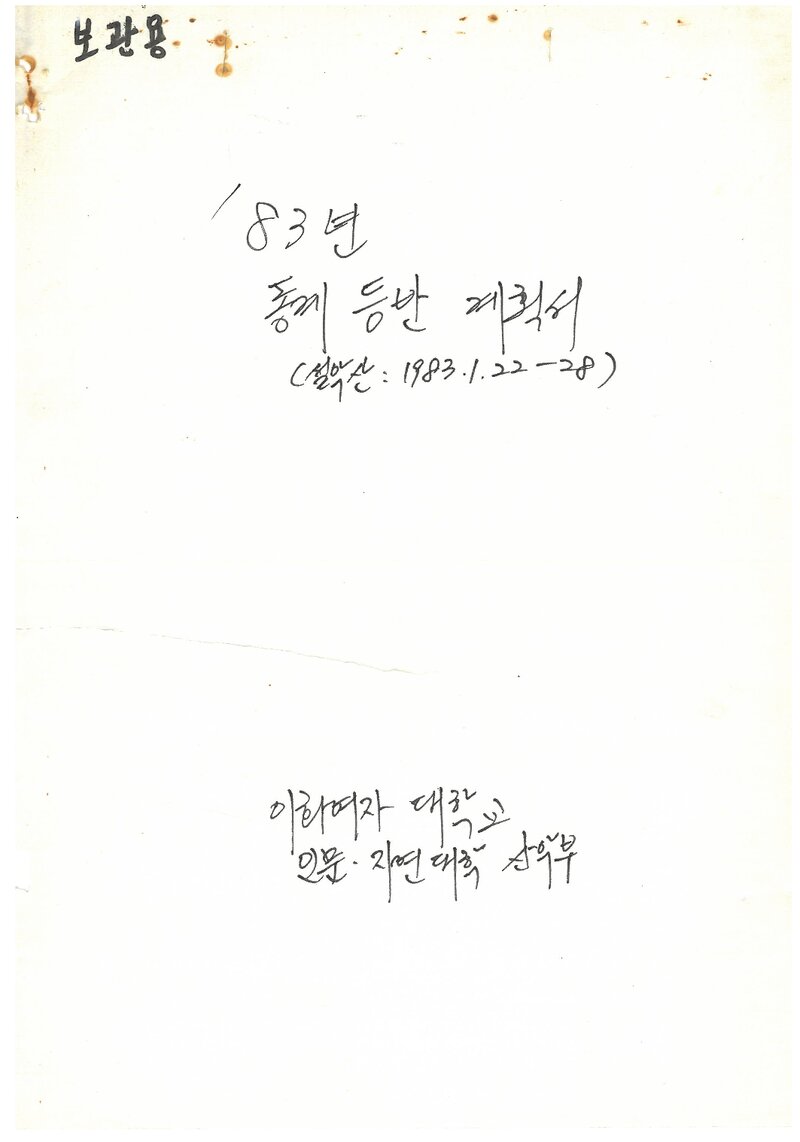 보관용
'83년
동계 등반 계획서
(설악산: 1983.1.22-28)
이화여자 대학교
인문·자연대학 산악부